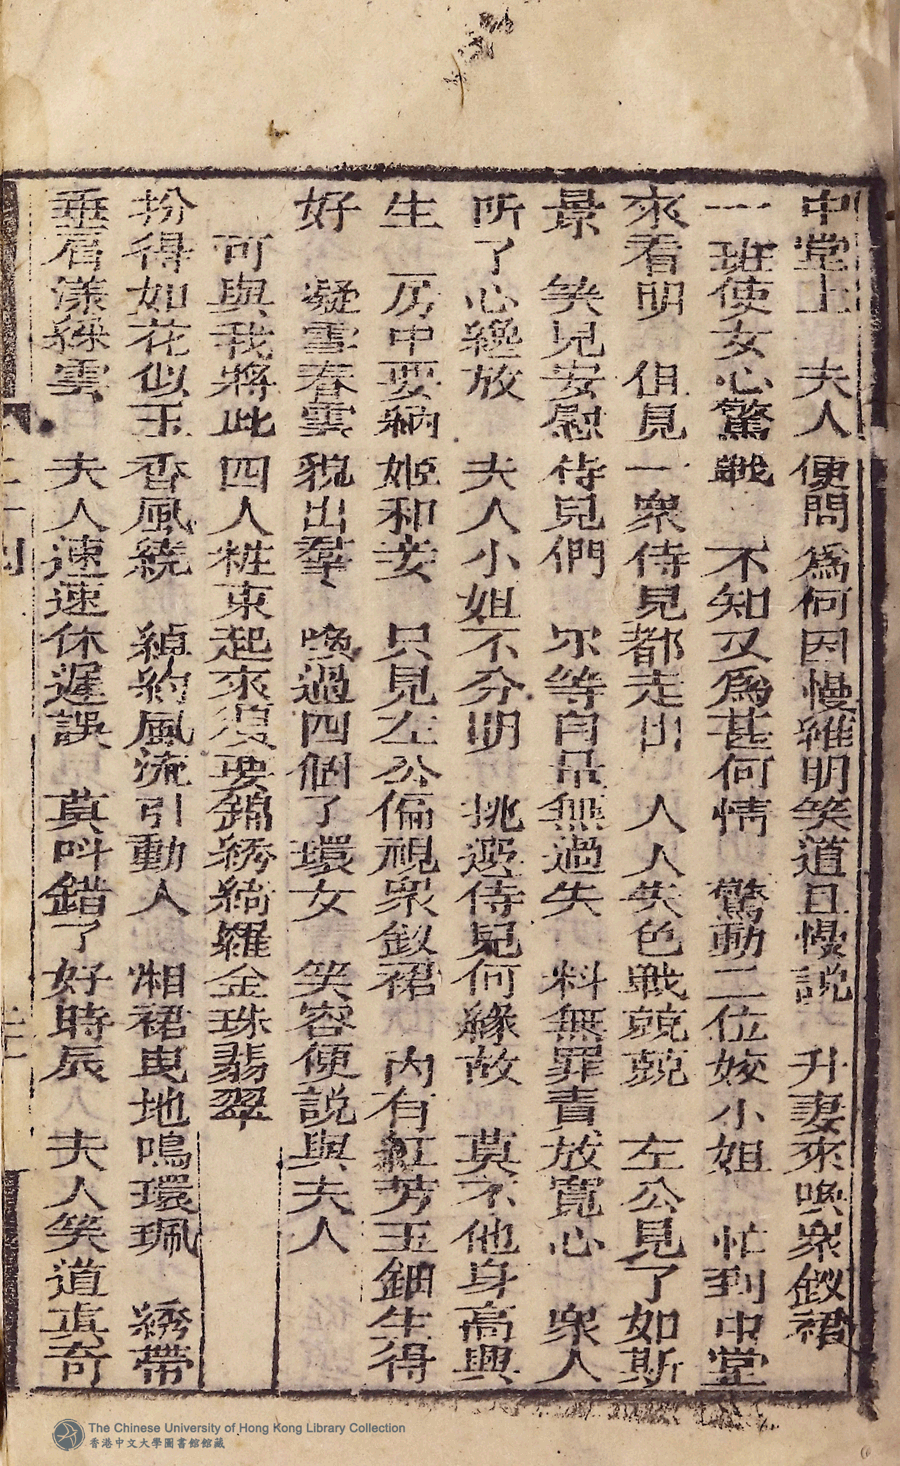 中堂上 夫人便問為何因 慢維明笑道且慢說 升妻來喚衆釵裙
一班使女心驚戰 不知又為甚何情 驚動二位姣小姐 忙到中堂
來看明 但見一衆侍兒都走出 人人失色戰兢兢 左公見了如斯
景 笑兒安慰侍兒們 尔等自星無過失 料無罪責放寬心 衆人
所了心纔放 夫人小姐不分明 挑選侍兒何緣故 莫不他身高興
生 房中要納姬和妾 只見左公偏視衆釵裙 內有紅芳玉鈿生得
好 凝雪春雲貌出羣 喚過四個了環女 笑容便說與夫人
可與我將此四人粧束起來須要錦綉綺羅金珠翡翠
扮得如花似玉 香風繞 綽約風流引動人 湘裙曳地鳴環珮 綉帶
垂肩漾綵雲 夫人速速休遲誤 莫呌錯了好時辰 夫人笑道真奇
The Chinese University of Hong Kong Library Collection
香港中文大學圖書館館藏